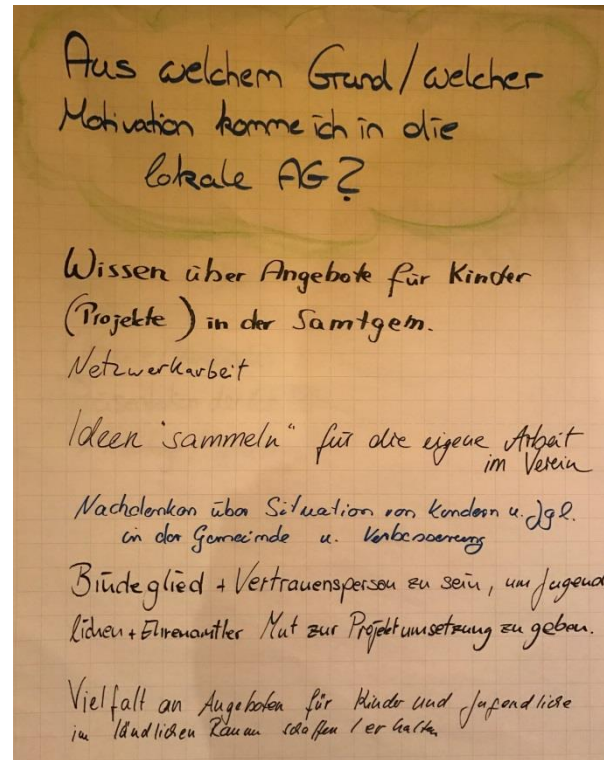 Aus welchem Grund / welcher
Motivation komme ich in die
lokale AG?
Wissen über Angebote für Kinder
(Projekte) in der Samtgem.
Netzwerkarbeit
Ideen "sammeln" für die eigene Arbeit
im Verein
Nachdenken über Situation von Kindern u. Jgl.
in der Gemeinde u. Verbesserung
Bindeglied + Vertrauensperson zu sein, um Jugend
lichen + Ehrenamtler Mut zur Projektumsetzung zu geben.
Vielfalt an Angeboten für Kinder und Jugendliche
im ländlichen Raum schaffen / erhalten